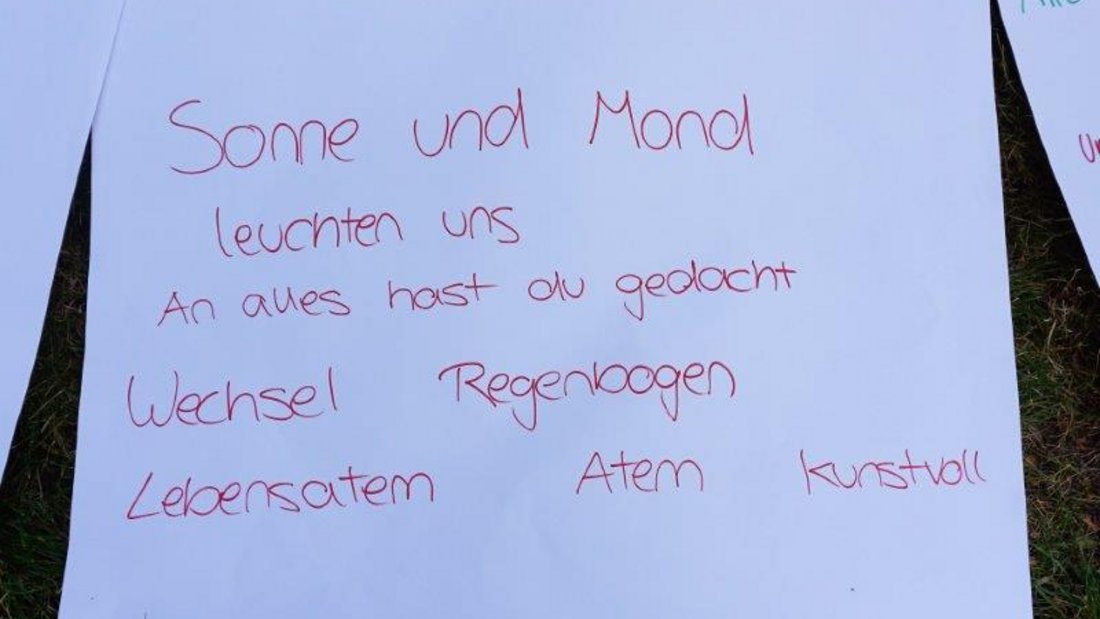 Sonne und Mond
leuchten uns
An alles hast du gedacht
Wechsel Regenbogen
Lebensatem Atem kunstvoll